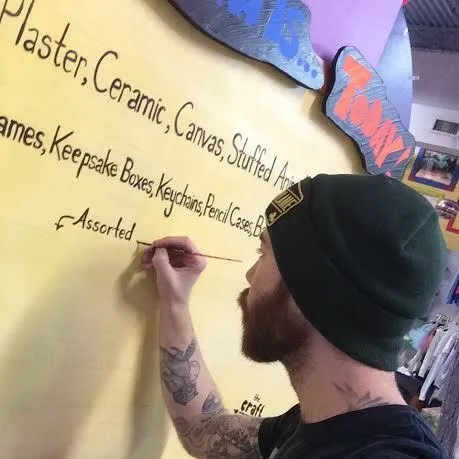 IS...
TODAY!
Plaster, Ceramic, Canvas, Stuffed Ani
ames, Keepsake Boxes, Keychains, Pencil Cases, B
Assorted
the
craft